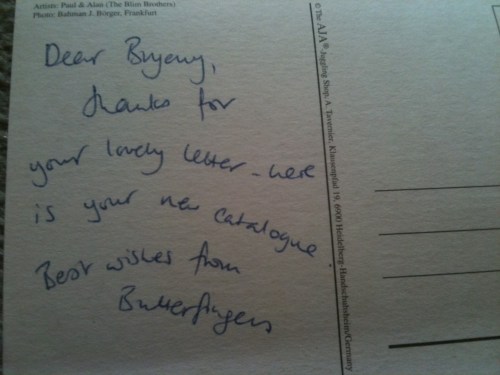 Artists: Paul & Alan (The Blim Brothers)
Photo: Bahman J. Börger, Frankfurt
Dear Bryony,
thanks for
your lovely letter - here
is your new catalogue.
Best wishes from
Butterfingers
© The AJA® Juggling Shop, A. Tavernier, Klausenpfad 19, 6900 Heidelberg-Handschuhsheim/Germany